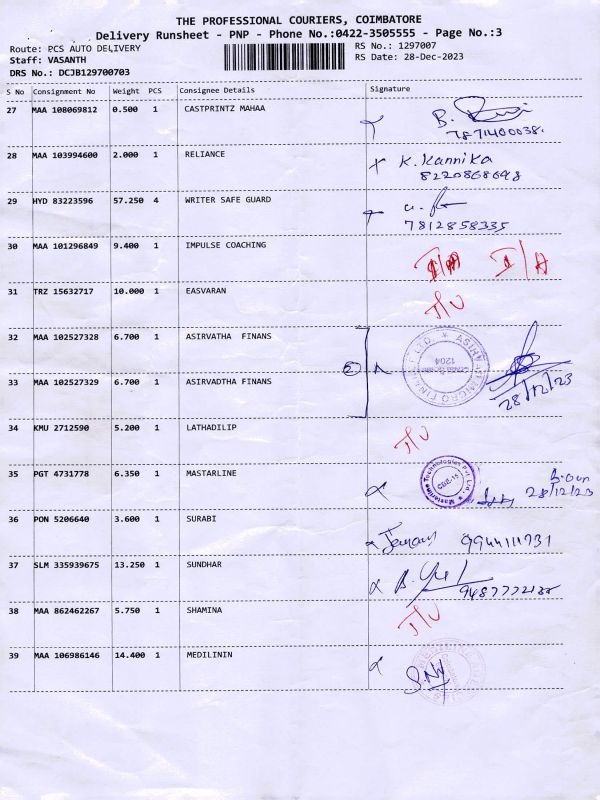 THE PROFESSIONAL COURIERS, COIMBATORE
Delivery Runsheet - PNP - Phone No.:0422-3505555 - Page No.:3
Route: PCS AUTO DELIVERY RS No.: 1297007
Staff: VASANTH RS Date: 28-Dec-2023
DRS No.: DCJB129700703
S No Consignment No Weight PCS Consignee Details Signature
27 MAA 108069812 0.500 1 CASTPRINTZ MAHAA
7871400038.
28 MAA 103994600 2.000 1 RELIANCE K. Kannika
8220868698
29 HYD 83223596 57.250 4 WRITER SAFE GUARD
7812858335
30 MAA 101296849 9.400 1 IMPULSE COACHING
31 TRZ 15632717 10.000 1 EASVARAN
32 MAA 102527328 6.700 1 ASIRVATHA FINANS
33 MAA 102527329 6.700 1 ASIRVADTHA FINANS
28/12/23
34 KMU 2712590 5.200 1 LATHADILIP
35 PGT 4731778 6.350 1 MASTARLINE
28/12/23
36 PON 5206640 3.600 1 SURABI
9944111731
37 SLM 335939675 13.250 1 SUNDHAR
38 MAA 862462267 5.750 1 SHAMINA
39 MAA 106986146 14.400 1 MEDILININ